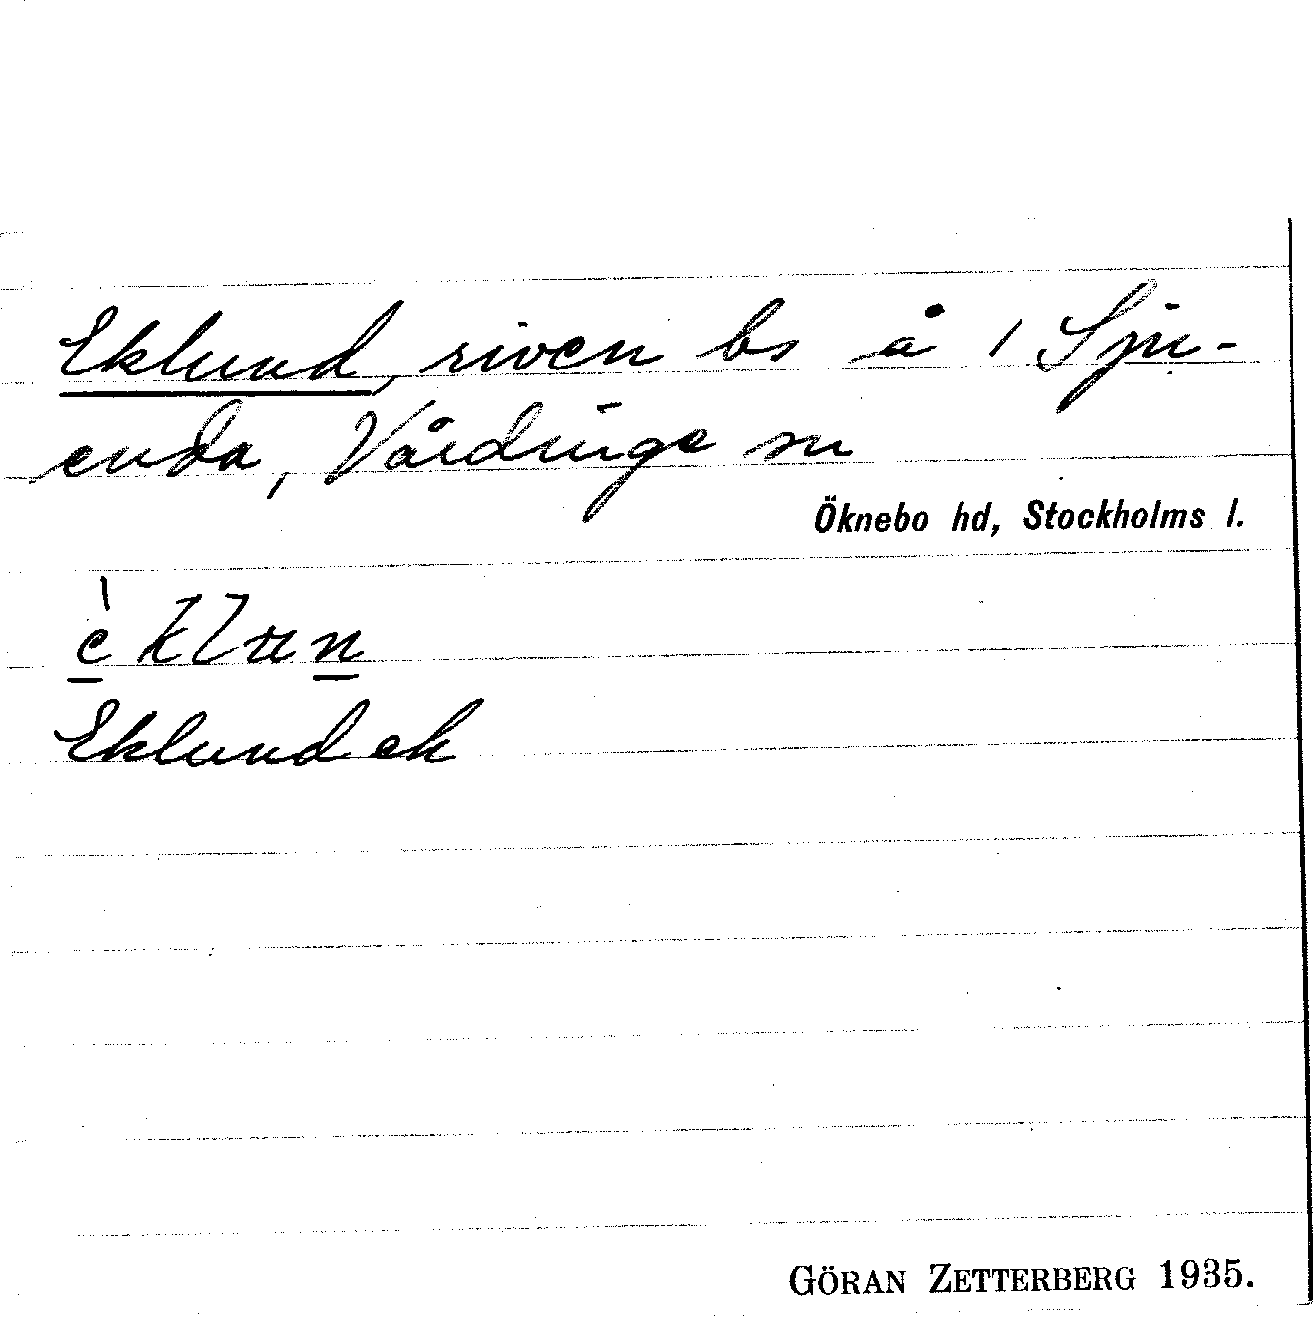 Eklund, riven bs å 1 Sju-
enda, Vårdinge sn
Öknebo hd, Stockholms l.
èklun
Eklund ek
GÖRAN ZETTERBERG 1935.